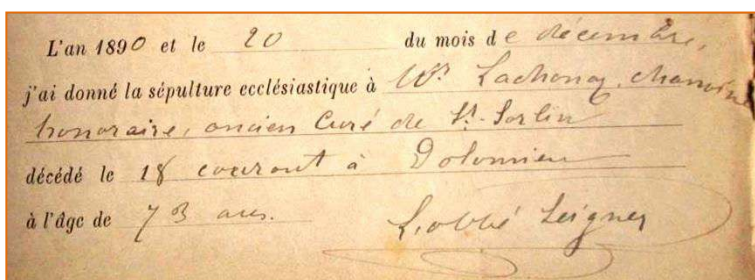 L'an 1890 et le 20 du mois de décembre,
j'ai donné la sépulture ecclésiastique à Mr Lachonay, chanoine
honoraire, ancien Curé de St-Sorlin
décédé le 18 courant à Dolomieu
à l'âge de 73 ans. L'abbé Seignez